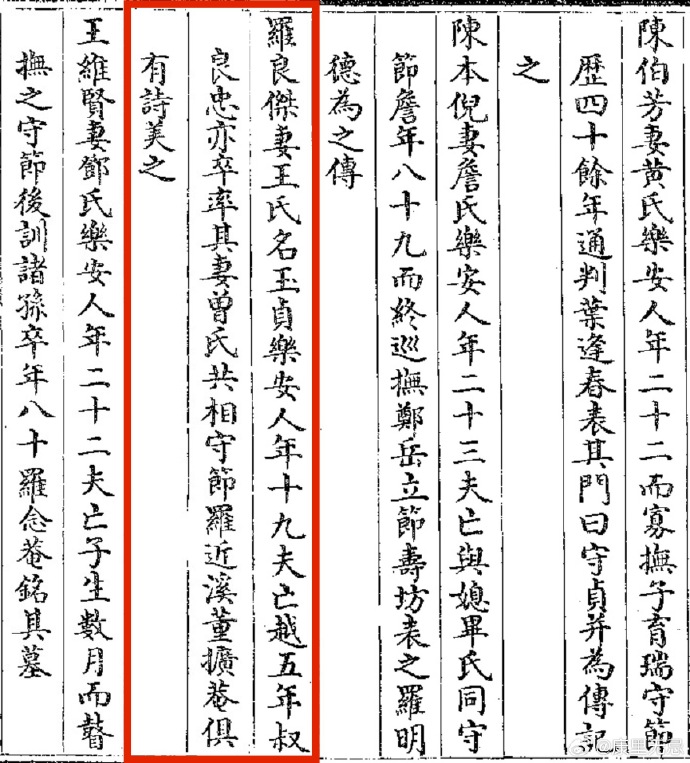 陳伯芳妻黃氏樂安人年二十二而寡撫子育瑞守節
歷四十餘年通判葉逢春表其門曰守貞并為傳記
之
陳本倪妻詹氏樂安人年二十三夫亡與媳畢氏同守
節詹年八十九而終巡撫鄭岳立節壽坊表之羅明
德為之傳
羅良傑妻王氏名玉貞樂安人年十九夫亡越五年叔
良忠亦卒率其妻曾氏共相守節羅近溪董擴菴俱
有詩美之
王維賢妻鄧氏樂安人年二十二夫亡子生數月而瞽
撫之守節後訓諸孫卒年八十羅念菴銘其墓